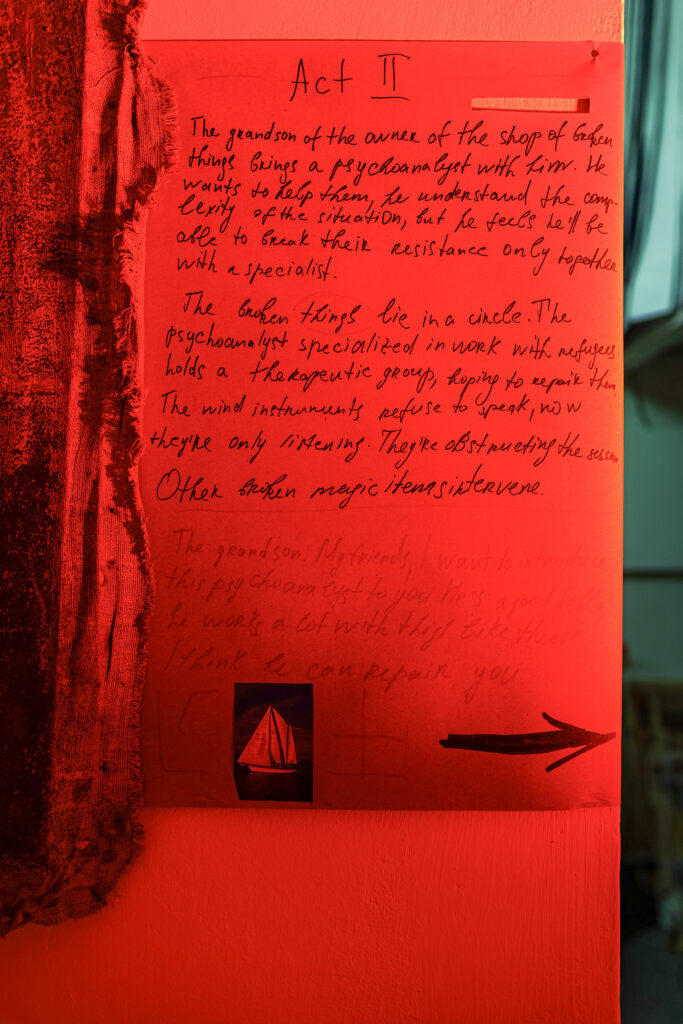 Act II
The grandson of the owner of the shop of broken
things brings a psychoanalyst with him. He
wants to help them, he understand the comp-
lexity of the situation, but he feels he'll be
able to break their resistance only together
with a specialist.
The broken things lie in a circle. The
psychoanalyst specialized in work with refugees
holds a therapeutic group, hoping to repair them.
The wind instruments refuse to speak, now
they're only listening. They're obstructing the session.
Other broken magic items intervene.
The grandson: My friends, I want to introduce
this psychoanalyst to you. He's a good fellow,
he works a lot with things like these
I think he can repair you